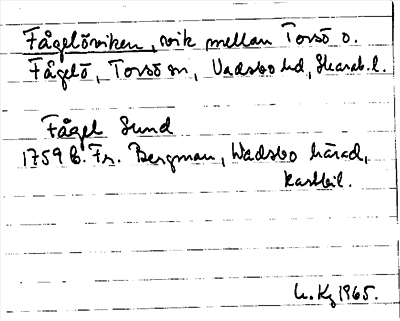 Fågelöviken, vik mellan Torsö o.
Fågelö, Torsö sn, Vadsbo hd, Skarab. l.
Fågel Sund
1759 C. Fr. Bergman, Wadsbo härad,
kartbil.
1965.